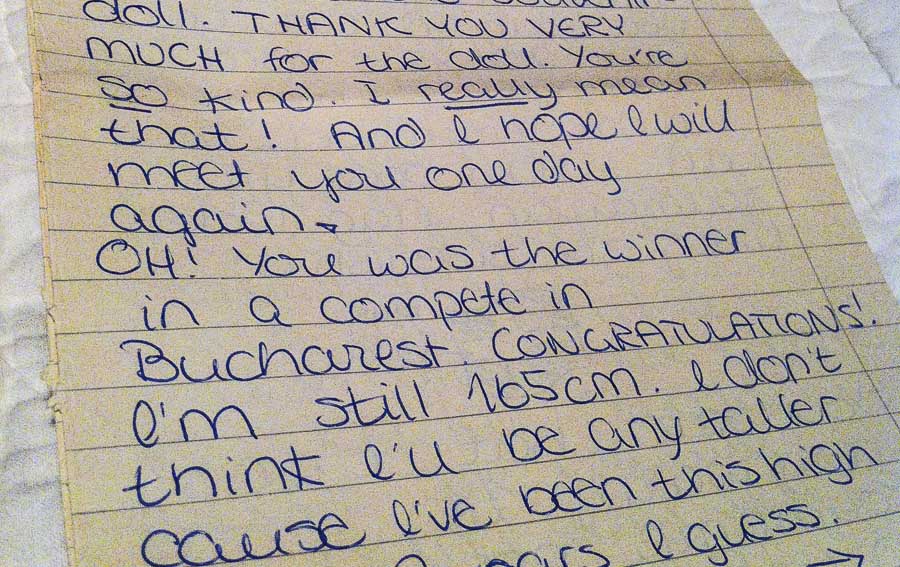 doll. THANK YOU VERY
MUCH for the doll. You're
so kind. I really mean
that! And I hope I will
meet you one day
again.
OH! You was the winner
in a compete in
Bucharest. CONGRATULATIONS!
I'm still 165cm. I don't
think I'll be any taller
cause I've been this high
years I guess.